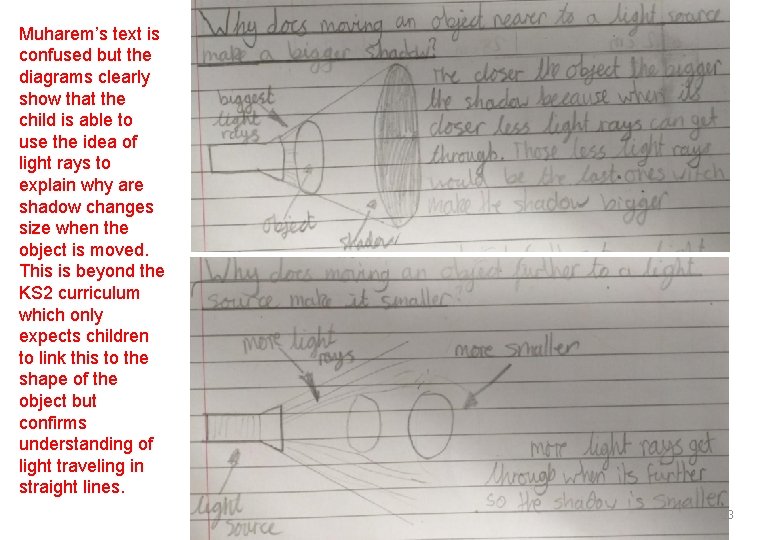 Muharem’s text is
confused but the
diagrams clearly
show that the
child is able to
use the idea of
light rays to
explain why are
shadow changes
size when the
object is moved.
This is beyond the
KS2 curriculum
which only
expects children
to link this to the
shape of the
object but
confirms
understanding of
light traveling in
straight lines.
Why does moving an object nearer to a light source
make a bigger shadow?
biggest
light
rays
object
shadow
The closer the object the bigger
the shadow because when its
closer less light rays can get
through. Those less light rays
would be the last ones witch
make the shadow bigger
Why does moving an object further to a light
source make it smaller?
more light
rays
more smaller
light
source
more light rays get
through when its further
so the shadow is smaller.
3